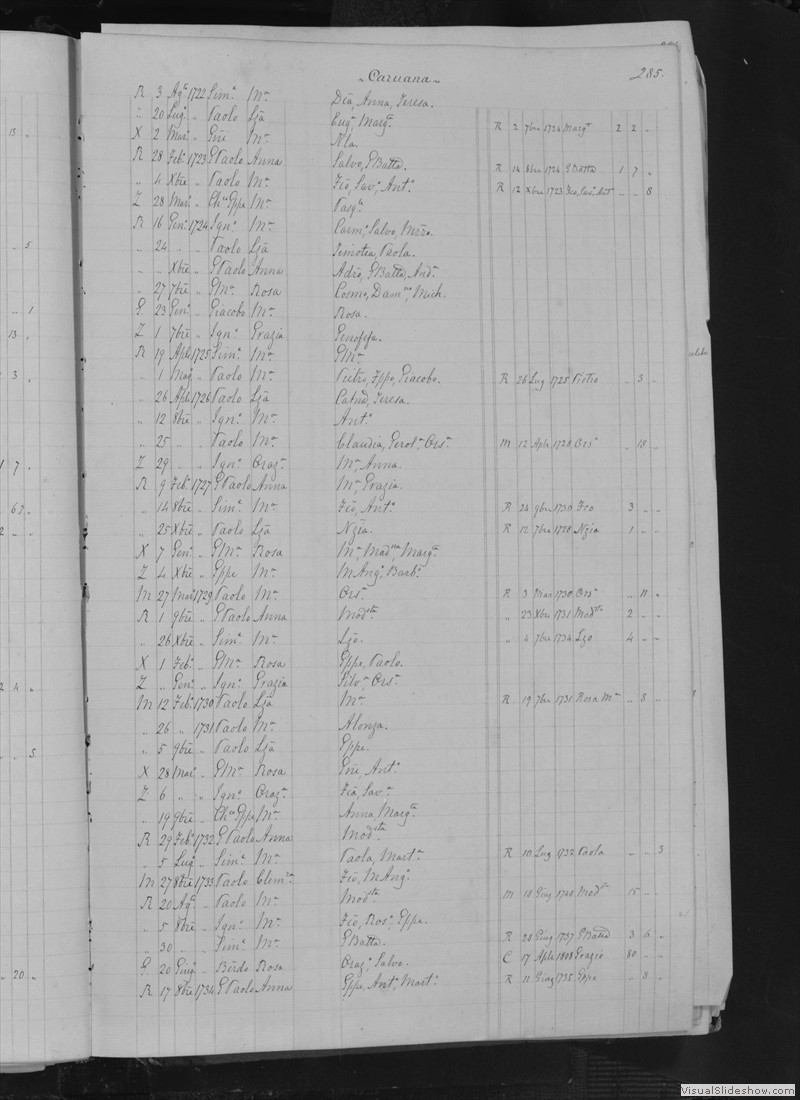 „ Caruana „
285.
R 3 Agto 1722 Simne Ma Dia, Anna, Teresa.
„ 20 Lugo „ Paolo Lja Euga, Margta R 2 7bre 1724 Margta 2 2 „
X 2 Maro „ Gni Ma Rla.
R 28 Febo 1723 GPaolo Anna Salvo, GBatta. R 14 8bre 1724 GBatta 1 7 „
„ 4 Xbre „ Paolo Ma Fco, Savo, Anto R 12 Xbre 1723 Fco, Savo, Anto „ „ 8
Z 28 Maro „ Chno Gppe Ma Pasqle
R 16 Geno 1724 Igno Ma Carmo, Salvo, Mro.
„ 24 „ „ Paolo Lja Timotea, Paola.
„ „ Xbre „ GPaolo Anna Adrio, GBatta, Anda
„ 27 7bre „ GMa Rosa Cosmo, Damno, Mich.
G 23 Geno „ Giacobo Ma Rosa.
Z 1 7bre „ Igno Grazia Genoffa.
R 19 Aple 1725 Simne Ma GMa
„ 1 Mag „ Paolo Ma Pietro, Gppe, Giacobo. R 26 Lug 1725 Pietro „ 3 „
„ 26 Aple 1726 Paolo Lja Catna, Teresa.
„ 12 8bre „ Igno Ma Anto
„ 25 „ „ Paolo Ma Claudia, Gerola, Orsa M 12 Aple 1728 Orsa „ 13 „
Z 29 „ „ Igno Graza Ma, Anna.
R 9 Febo 1727 GPaolo Anna Ma, Grazia.
„ 14 8bre „ Simne Ma Fco, Anto R 24 9bre 1730 Fco 3 „ „
„ 25 Xbre „ Paolo Lja Nzia. R 12 7bre 1728 Nzia 1 „ „
X 7 Geno „ GMa Rosa Ma, Madna, Margta
Z 4 Xbre „ Gppe Ma MAnga, Barba
M 27 Maro 1729 Paolo Ma Orsa R 3 Mar 1730 Orsa „ 11 „
R 1 9bre „ GPaolo Anna Modsta „ 23 Xbre 1731 Modsta 2 „ „
„ 26 Xbre „ Simne Ma Lzo. „ 4 7bre 1734 Lzo 4 „ „
X 1 Febo „ GMa Rosa Gppe, Paolo.
Z „ Geno „ Igno Grazia Silva, Orsa
M 12 Febo 1730 Paolo Lja Ma R 19 7bre 1731 Rosa Ma „ 8 „
„ 26 „ 1731 Paolo Ma Alonza.
„ 5 9bre „ Paolo Lja Gppe.
X 28 Maro „ GMa Rosa Gni, Anto
Z 6 „ „ Igno Graza Fca, Sava
„ 19 9bre „ Chno Gppe Ma Anna, Margta
R 29 Febo 1732 GPaolo Anna Modsta
„ 5 Lug „ Simne Ma Paola, Marta R 10 Lug 1732 Paola „ „ 3
M 27 8bre 1733 Paolo Clemza Fco, MAngo
R 20 Ago „ Paolo Ma Modsta M 18 Giug 1740 Modsta 15 „ „
„ 5 8bre „ Igno Ma Fco, Roso, Gppe.
„ 30 „ „ Simne Ma GBatta. R 28 Giug 1737 GBatta 3 6 „
G 20 Giug „ Berdo Rosa Grazo, Salvo. C 17 Aple 1808 Grazio 80 „ „
R 17 8bre 1734 GPaolo Anna Gppe, Anto, Marto R 11 Giug 1735 Gppe „ 8 „
VisualSlideshow.com